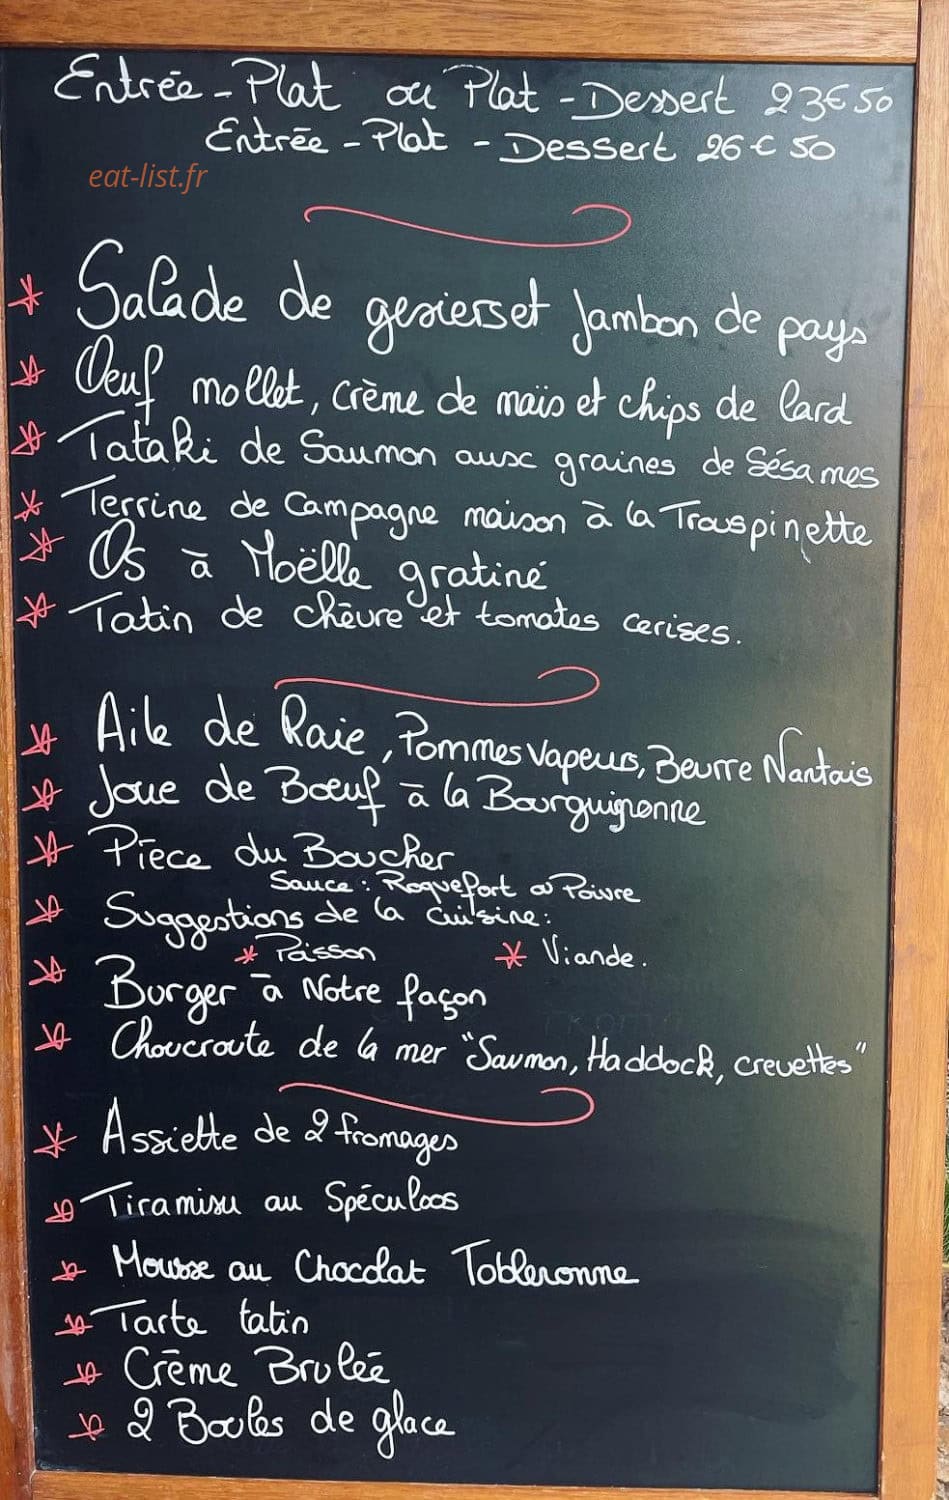 Entrée - Plat ou Plat - Dessert 23€50
Entrée - Plat - Dessert 26€50
eat-list.fr
Salade de gesierset Jambon de pays
Oeuf mollet, crème de maïs et chips de lard
Tataki de Saumon aux graines de Sésames
Terrine de Campagne maison à la Trouspinette
Os à Moëlle gratiné
Tatin de chèvre et tomates cerises.
Aile de Raie, Pommes Vapeurs, Beurre Nantais
Joue de Boeuf à la Bourguignonne
Pièce du Boucher
Sauce : Roquefort ou Poivre
Suggestions de la cuisine :
* Poisson * Viande.
Burger à Notre façon
Choucroute de la mer "Saumon, Haddock, crevettes"
Assiette de 2 fromages
Tiramisu au Spéculoos
Mousse au Chocolat Tobleronne
Tarte tatin
Crème Brulée
2 Boules de glace